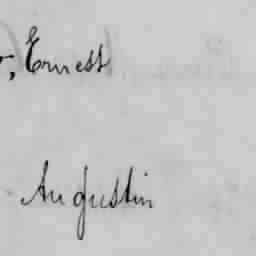 , Ernest
Augustin